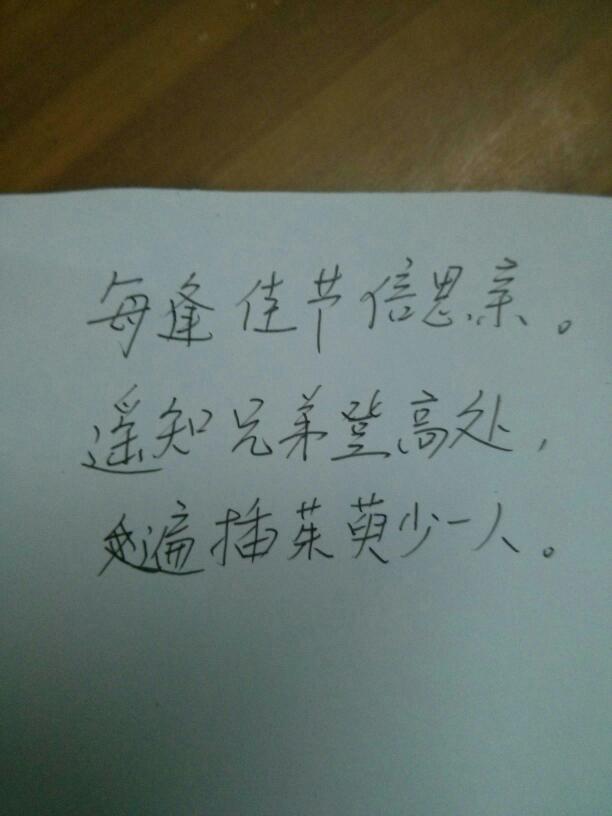 每逢佳节信思亲。
遥知兄弟登高处，
遍插茱萸少一人。